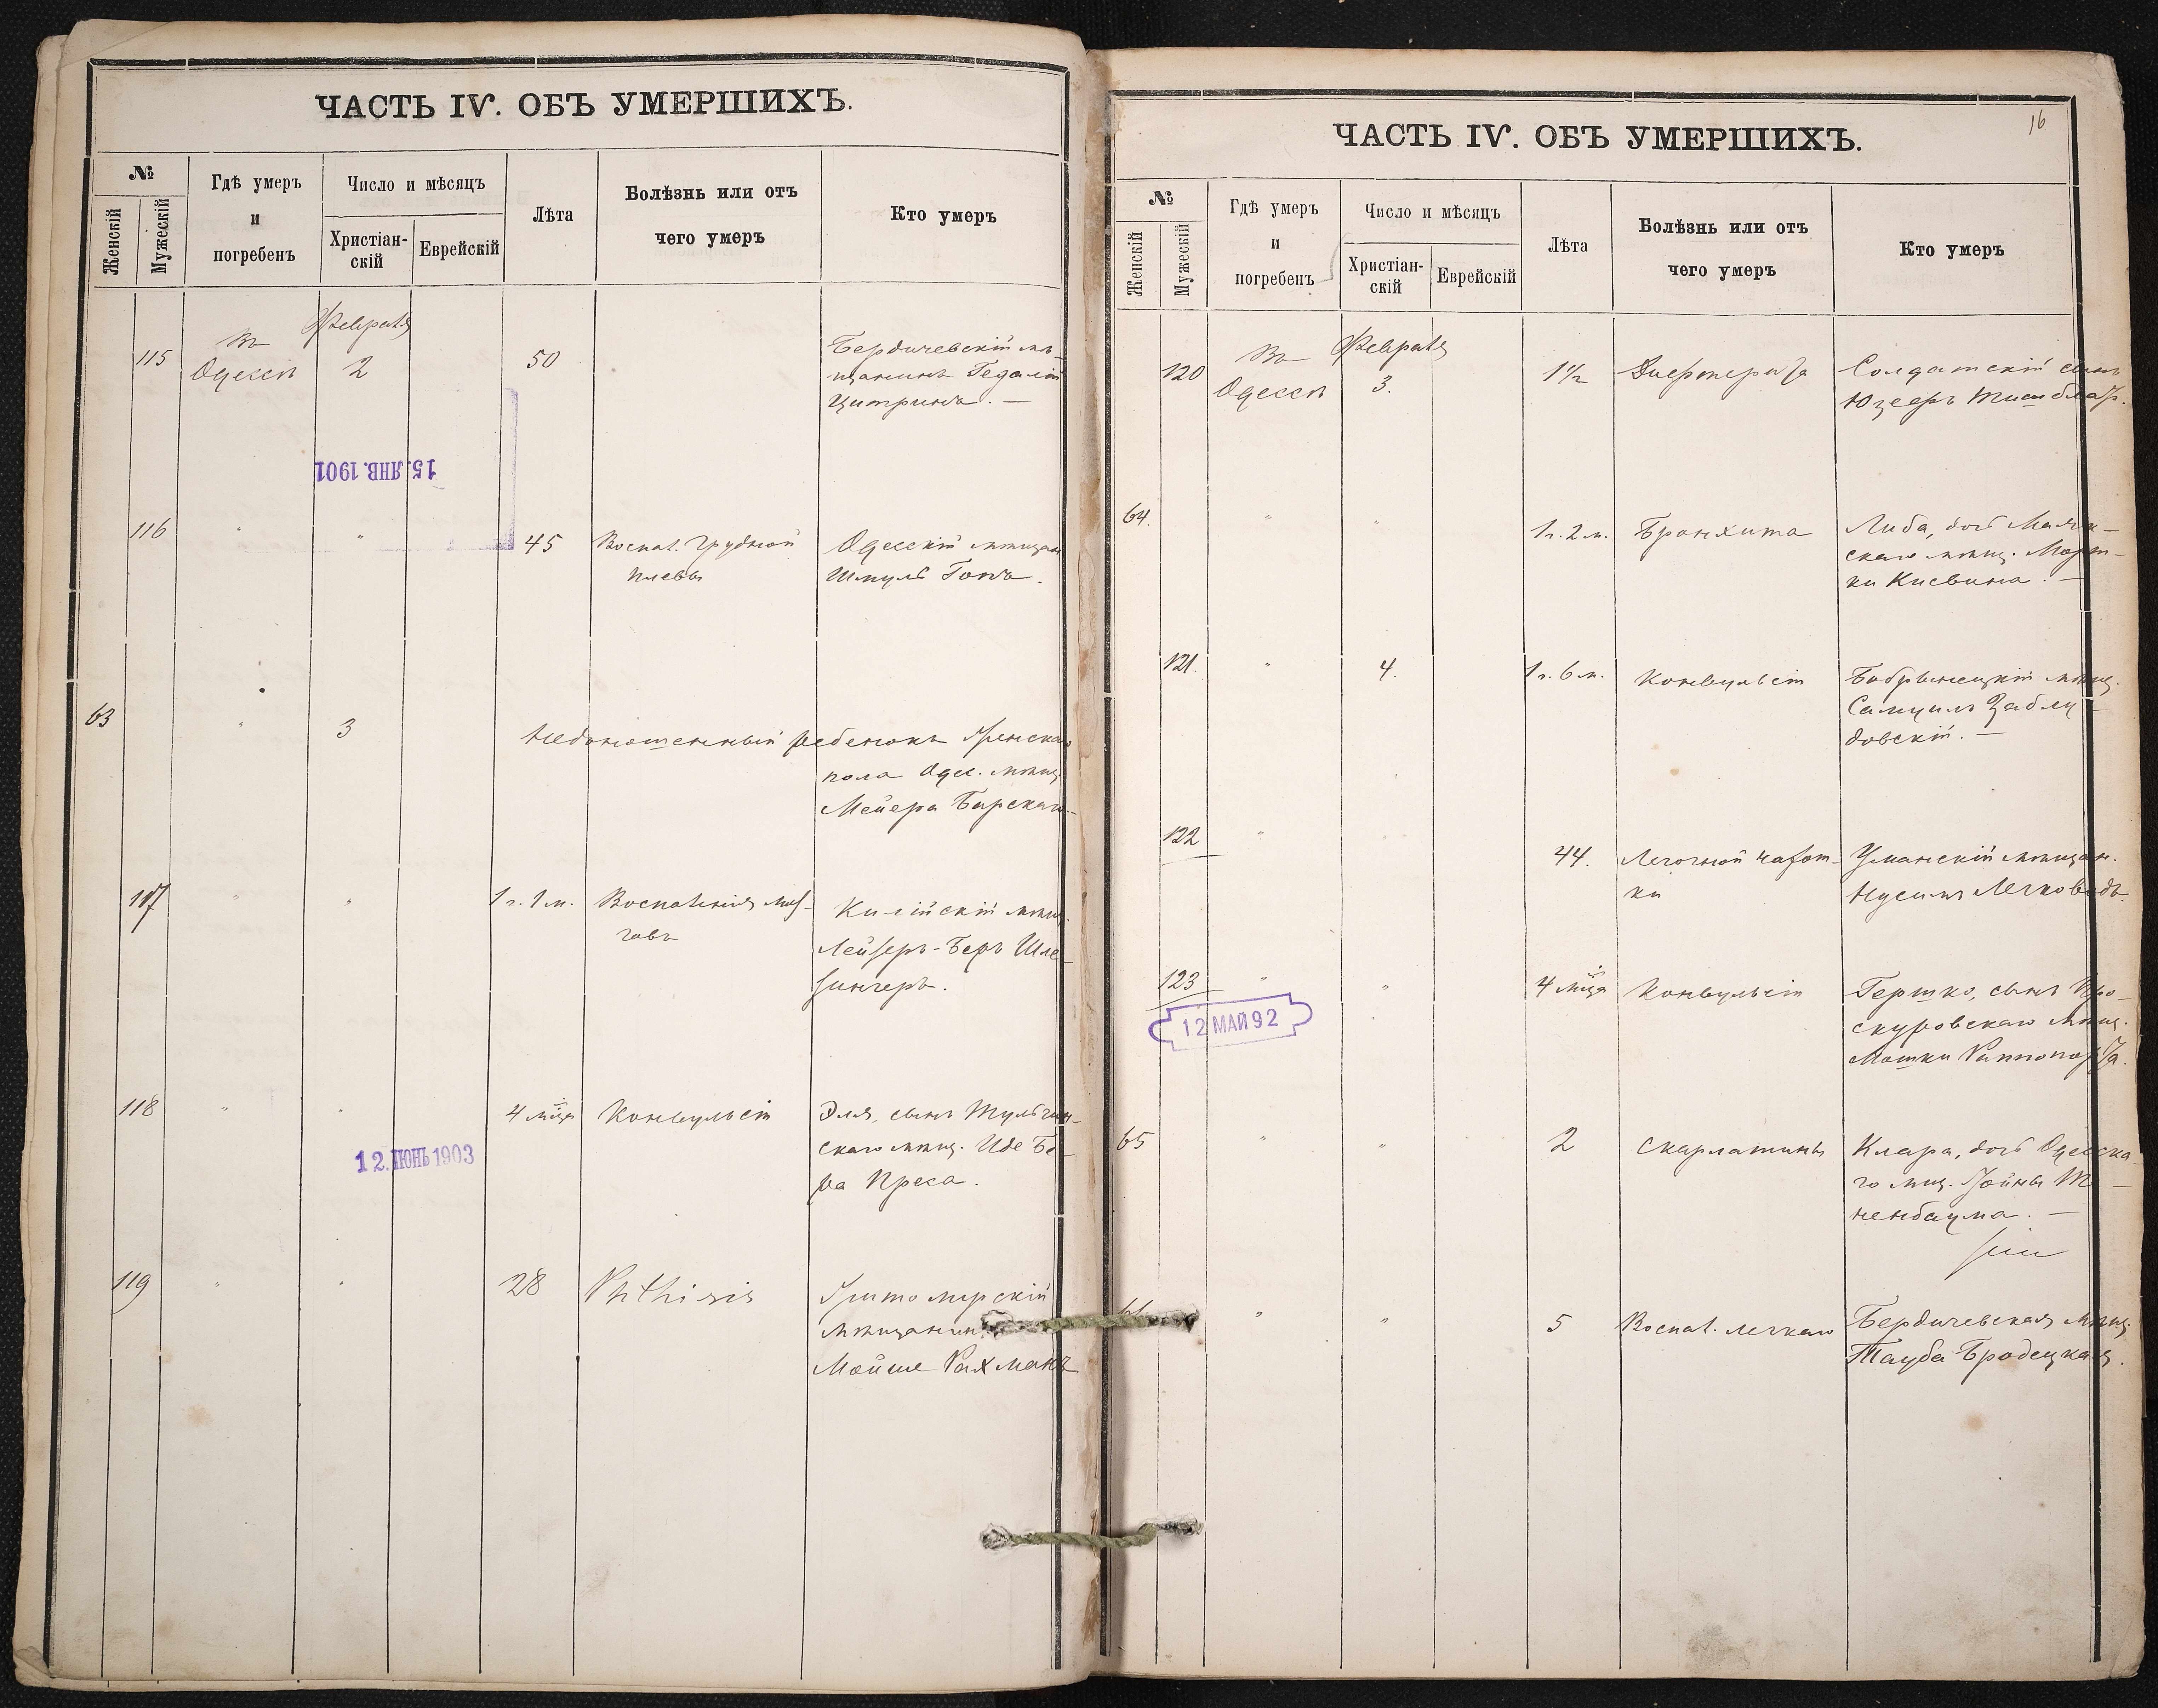 ЧАСТЬ IV. ОБЪ УМЕРШИХЪ.
№
Женскій
Мужескій
Гдѣ умеръ
и
погребенъ
Число и мѣсяцъ
Христіан-
скій
Еврейскій
Лѣта
Болѣзнь или отъ
чего умеръ
Кто умеръ
115
Въ
Одессѣ
Февраля
2
50
Бердичевскій мѣ-
щанинъ Гедалій
Цитринъ. —
15. ЯНВ. 1901
116
"
"
45
Воспал. грудной
плевы
Одесскій мѣщан
Шмуль
63
"
3
Недоношенный ребенокъ женскаго
пола Одес. мѣщ.
Мейера Барскаго. -
117
"
"
1 г. 1 м.
Воспаленія моз-
говъ
Килійскій мѣщ.
Лейзеръ-Беръ Шле-
зингеръ.
118
"
"
4 мѣца
Конвульсіи
Эля, сынъ Тульчин-
скаго мѣщ. Иде Бе-
ра Преса.
12. ІЮНЬ 1903
119
"
"
28
Phthisis
Житомирскій
мѣщанинъ
Мойше Рахманъ
16
ЧАСТЬ IV. ОБЪ УМЕРШИХЪ.
№
Женскій
Мужескій
Гдѣ умеръ
и
погребенъ
Число и мѣсяцъ
Христіан-
скій
Еврейскій
Лѣта
Болѣзнь или отъ
чего умеръ
Кто умеръ
120
Въ
Одессѣ
Февраля
3.
1 1/2
Дифтерита
Солдатскій сынъ
Юзефъ
64.
"
"
1 г. 2 м.
Бронхита
Либа, дочь Маяк-
скаго мѣщ. Морт-
ки Киевина. —
121.
"
4.
1 г. 6 м.
Конвульсіи
Бобринецкій мѣщ.
Самуилъ Заблу-
довскій. —
122
"
"
44.
Легочной чахот-
ки
Уманскій мѣщан.
Нусинъ Легковъдъ.
123
"
"
4 мѣца
Конвульсіи
Гершко, сынъ Про-
скуровскаго мѣщ.
Мошки Раппопорта.
12 МАЙ 92
65
"
"
2
Скарлатины
Клара, дочь Одесска-
го мѣщ. Хойны Те-
ненбаума. —
66.
"
"
5
Воспал. легкаго
Бердичевская мѣщ.
Тауба Бродецкая.